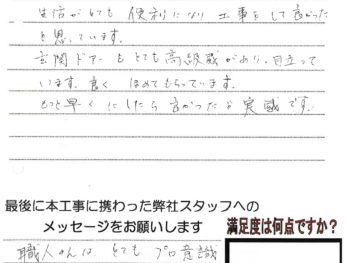 生活がとても 便利になり 工事をして良かった
と思っています。
玄関ドアーもとても高級感があり、目立って
います。良く ほめてもらっています。
もっと早く にしたら 良かったな 実感です。
最後に本工事に携わった弊社スタッフへの
メッセージをお願いします
満足度は何点ですか？
職人さんは とても プロ意識